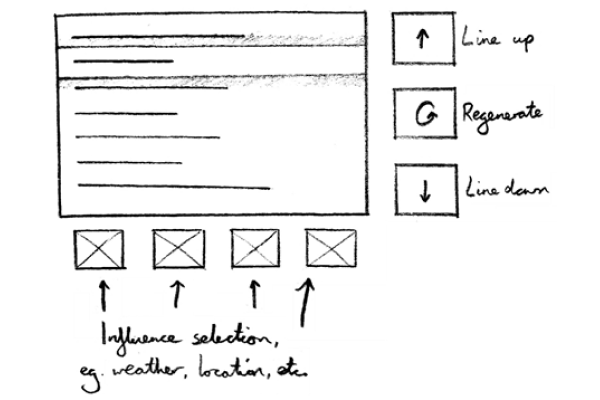 Line up
Regenerate
Line down
Influence selection,
eg. weather, location, etc.